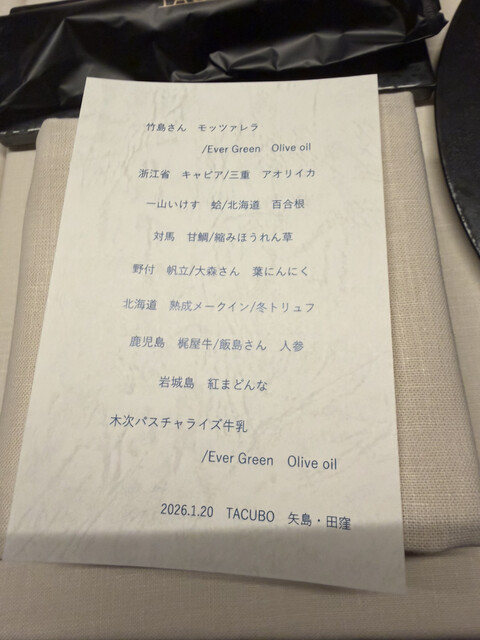 竹島さん　モッツァレラ
/Ever Green　Olive oil
浙江省　キャビア/三重　アオリイカ
一山いけす　蛤/北海道　百合根
対馬　甘鯛/縮みほうれん草
野付　帆立/大森さん　葉にんにく
北海道　熟成メークイン/冬トリュフ
鹿児島　梶屋牛/飯島さん　人参
岩城島　紅まどんな
木次パスチャライズ牛乳
/Ever Green　Olive oil
2026.1.20　TACUBO　矢島・田窪